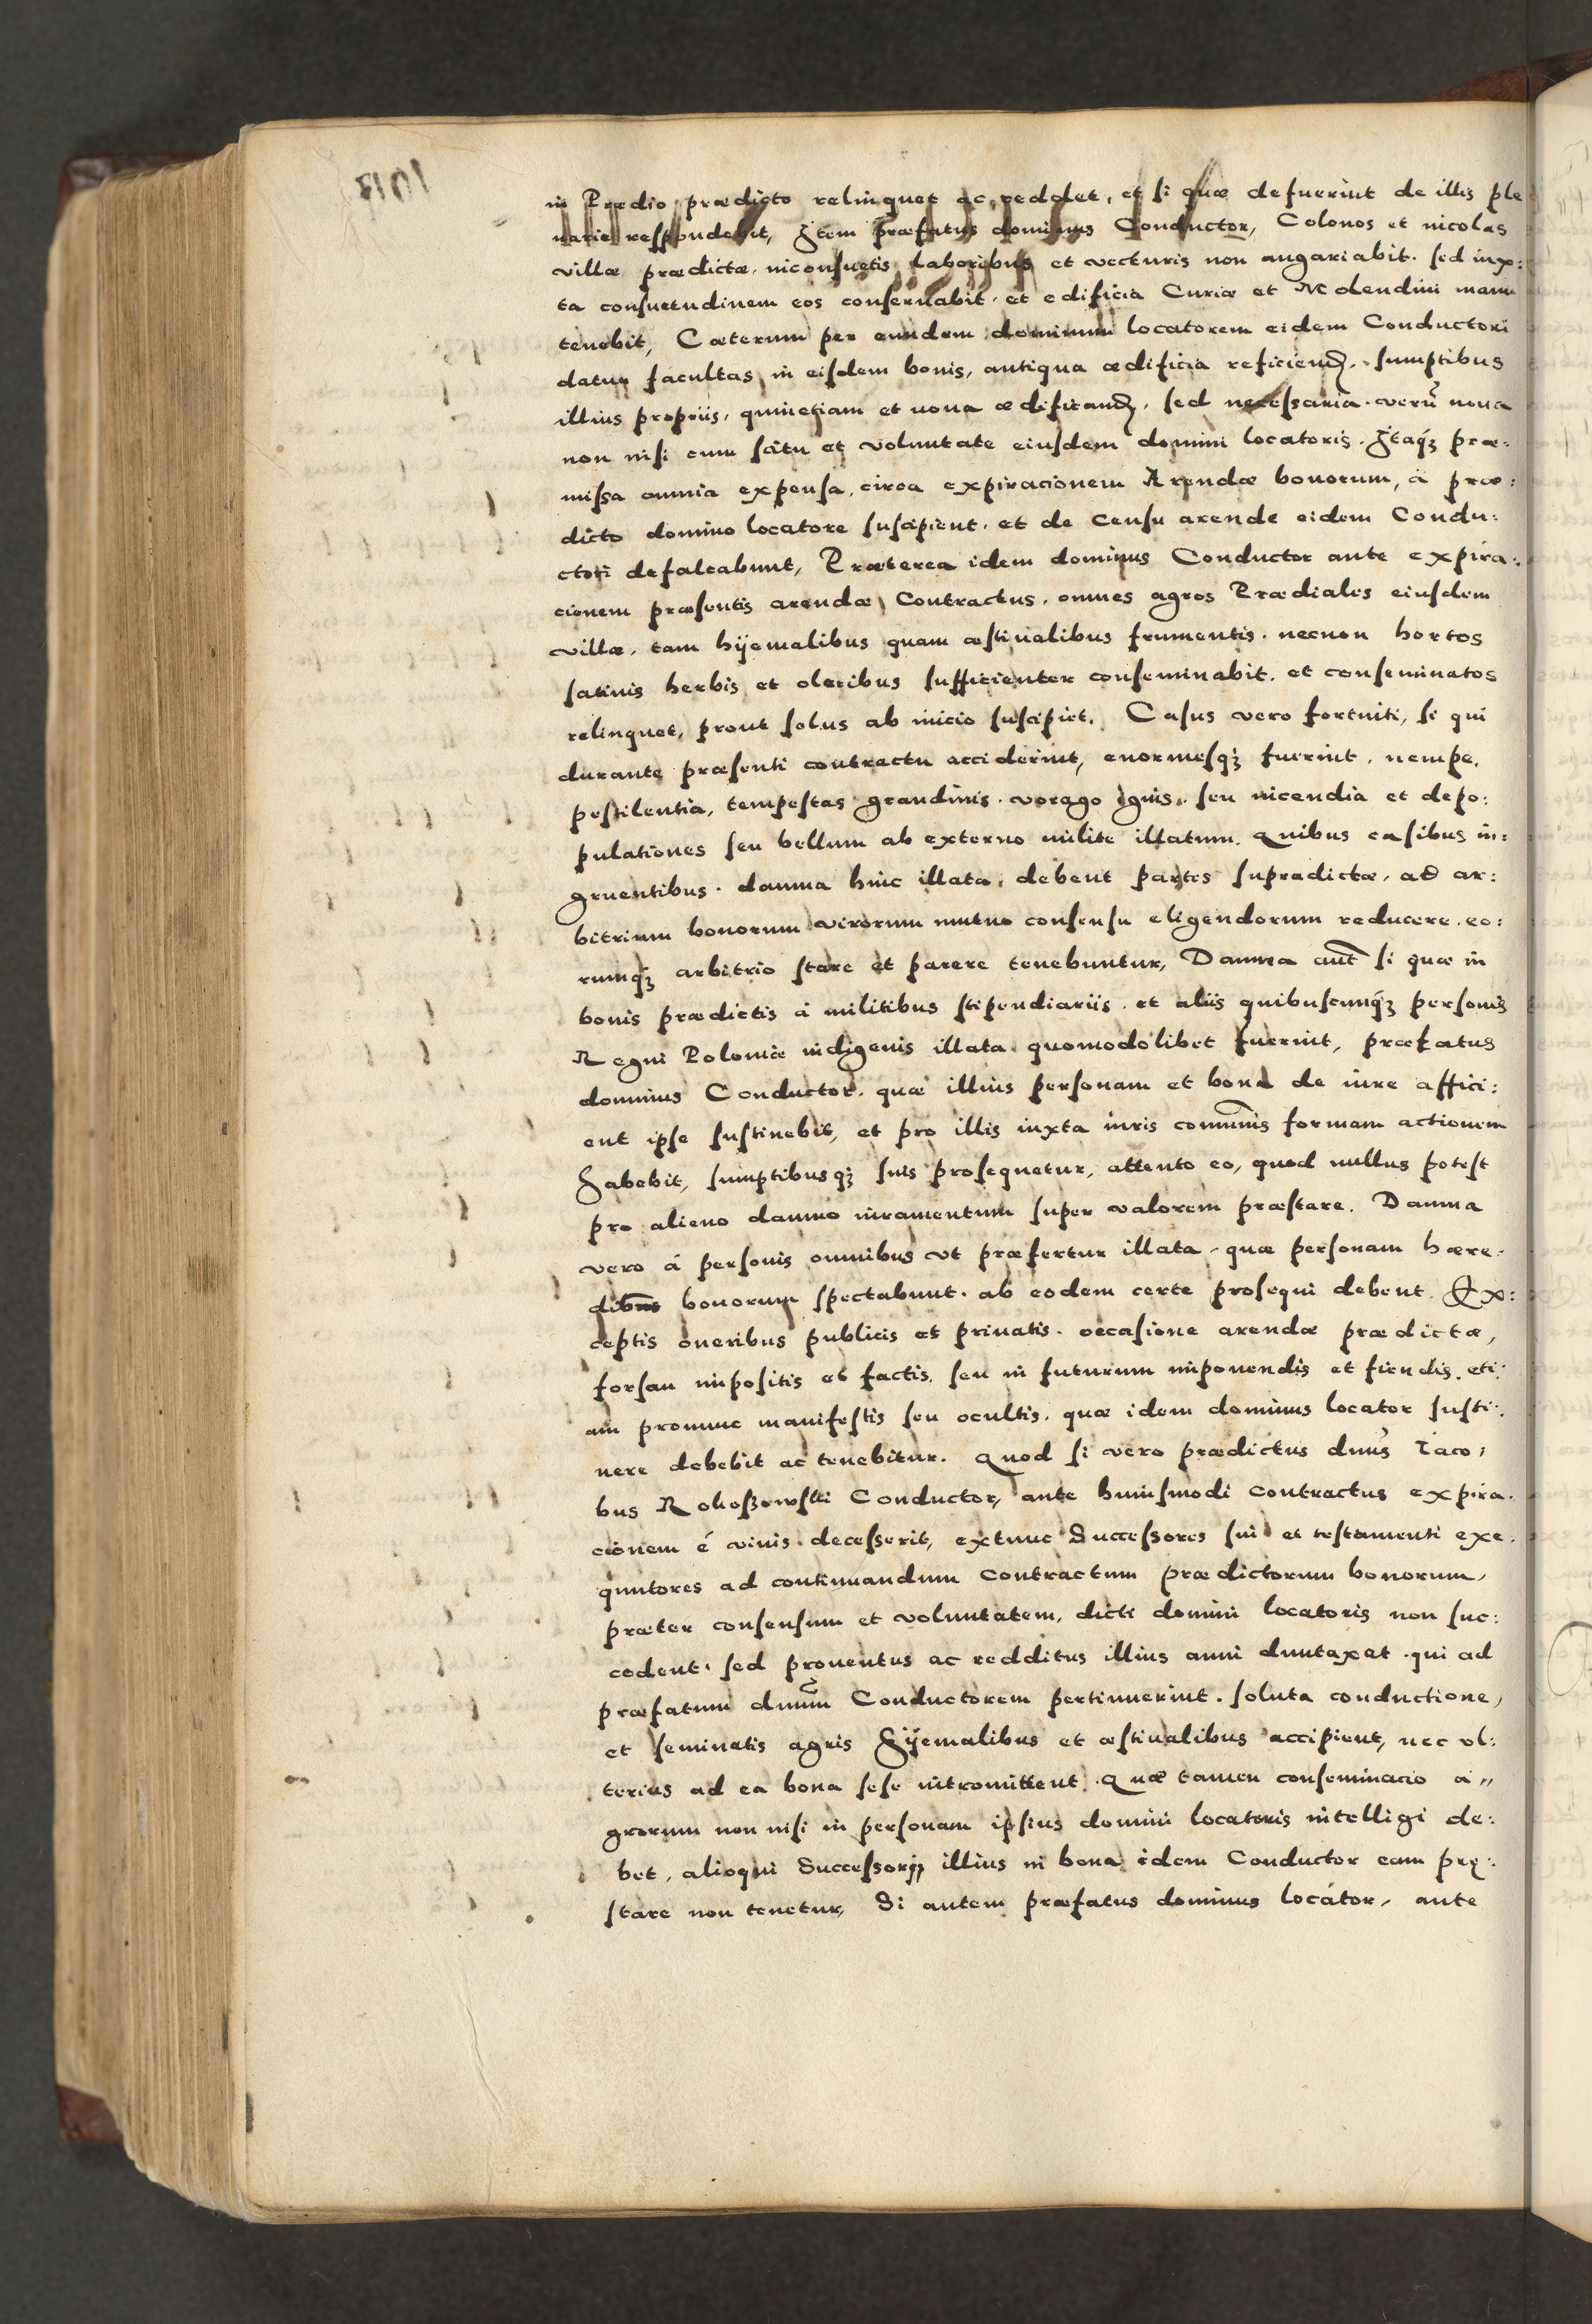 in Prædio prædicto relinquet ac reddet, et si quæ defuerint de illis ple
narie respondebit, Item præfatus dominus Conductor, Colonos et incolas
villæ prædictæ, inconsuetis laboribus et vecturis non angariabit. sed iux:
ta consuetudinem eos conseruabit, et edificia Curiæ et Molendini manu
tenebit, Cæterum per eundem dominum locatorem eidem Conductori
datur facultas in eisdem bonis, antiqua ædificia reficiend. sumptibus
illius propriis, quinetiam et noua ædificand, sed necessaria. verũ noua
non nisi cum scitu et voluntate eiusdem domini locatoris. Itaqꝫ præ:
missa omnia expensa, circa expiracionem Arendæ bonorum, à præ:
dicto domino locatore suscipient. et de censu arende eidem Condu:
ctori defalcabunt, Præterea idem dominus Conductor ante expira:
cionem præsentis arendæ Contractus, omnes agros Prædiales eiusdem
villæ, tam hÿemalibus quam æstiualibus frumentis. necnon hortos
satiuis herbis et oleribus sufficienter conseminabit. et conseminatos
relinquet, prout solus ab inicio suscipiet. Casus vero fortuiti, si qui
durante præsenti contractu acciderint, enormesqꝫ fuerint, nempe,
pestilentia, tempestas grandinis. vorago ignis, seu incendia et depo:
pulationes seu bellum ab externo milite illatum. Quibus casibus in:
gruentibus. damna hinc illata, debent partes supradictæ, ad ar:
bitrium bonorum virorum mutuo consensu eligendorum reducere. eo:
rumqꝫ arbitrio stare et parere tenebuntur, Damna aut̃ si quæ in
bonis prædictis à militibus stipendiariis. et aliis quibuscunqꝫ personis
Regni Poloniæ indigenis illata quomodolibet fuerint, præfatus
dominus Conductor. quæ illius personam et bona de iure affici:
ent ipse sustinebit, et pro illis iuxta iuris comunis formam actionem
habebit, sumptibusqꝫ suis prosequetur, attento eo, quod nullus potest
pro alieno damno iuramentum super valorem præstare. Damna
vero á personis omnibus vt præfertur illata, quæ personam hære:
dibus bonorum spectabunt. ab eodem certe prosequi debent. Ex:
ceptis oneribus publicis et priuatis. occasione arendæ prædictæ,
forsan impositis et factis, seu in futurum imponendis et fiendis. eti:
am pronunc manifestis seu ocultis. quæ idem dominus locator susti:
nere debebit ac tenebitur. Quod si vero prædictus dnus Iaco:
bus Rokoszowski Conductor, ante huiusmodi contractus expira:
cionem é viuis decesserit, extunc Successores sui et testamenti exe:
quutores ad continuandum contractum prædictorum bonorum,
præter consensum et voluntatem, dicti domini locatoris non suc:
cedent, sed prouentus ac redditus illius anni duntaxat. qui ad
præfatum dnum Conductorem pertinuerint. soluta conductione,
et seminatis agris hÿemalibus et æstiualibus accipient, nec vl:
terius ad ea bona sese intromittent. Quæ tamen conseminacio a„
grorum non nisi in personam ipsius domini locatoris intelligi de:
bet, alioqui Successori illius in bona idem Conductor eam prę:
stare non tenetur, Si autem præfatus dominus locátor, ante